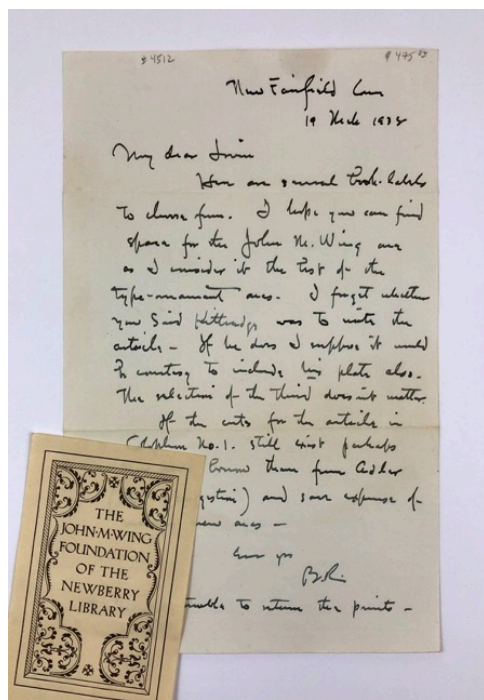 $4512
$475
New Fairfield Conn
19 1938
My dear Irvin
Here are several book-labels
to choose from. I hope you can find
space for the John M. Wing one
as I consider it the best of the
type-ornament ones. I forget whether
you said Kittredge was to write the
article – If he does I suppose it would
be courtesy to include his plate also.
The selection of the third doesn't matter.
If the cuts for the article in
Colophon No. 1. still exist perhaps
borrow them from Adler
) and save expense of
new ones –
Ever yrs
to return the prints –
THE
JOHN·M·WING
FOUNDATION
OF THE
NEWBERRY
LIBRARY